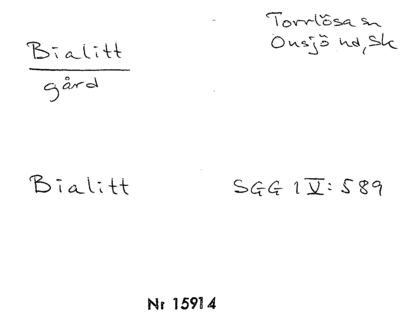 Torrlösa sn
Onsjö hd, Sk
Bialitt
gård
Bialitt
SGG 1 V: 589
Nr 15914